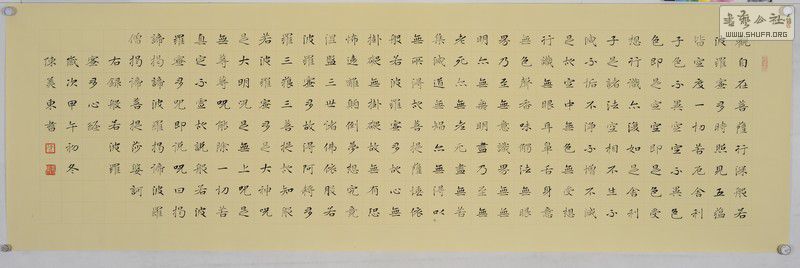 觀自在菩薩行深般若
波羅蜜多時照見五蘊
皆空度一切苦厄舍利
子色不異空空不異色
色即是空空即是色受
想行識亦復如是舍利
子是諸法空相不生不
滅不垢不淨不增不減
是故空中無色無受想
行識無眼耳鼻舌身意
無色聲香味觸法無眼
界乃至無意識界無無
明亦無無明盡乃至無
老死亦無老死盡無苦
集滅道無智亦無得以
無所得故菩提薩埵依
般若波羅蜜多故心無
掛礙無掛礙故無有恐
怖遠離顛倒夢想究竟
涅槃三世諸佛依般若
波羅蜜多故得阿耨多
羅三藐三菩提故知般
若波羅蜜多是大神咒
是大明咒是無上咒是
無等等咒能除一切苦
真實不虛故說般若波
羅蜜多咒即說咒曰揭
諦揭諦波羅揭諦波羅
僧揭諦菩提莎婆訶
右錄般若波羅
蜜多心經
歲次甲午初冬
陳美東書
书艺公社
WWW.SHUFA.ORG